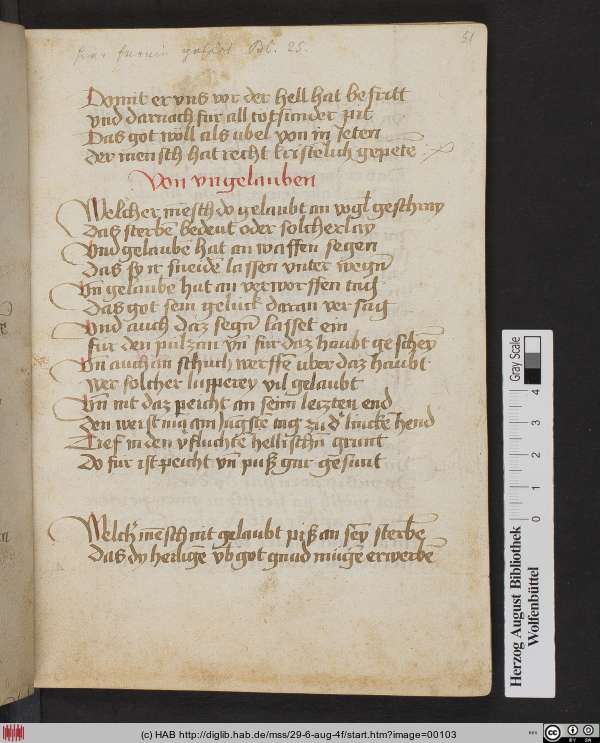 51
Bl. 25.
Domit er vns vor der hell hat befritt
vnd darnach für all totsunder pit
Das got wöll als vbel von in ieten
der mensch hat recht kristelich gepetē
Von vngelauben
Welcher mēsch do gelaubt an vogl geschray
Das sterbē bedeut oder solcherlay
Vnd gelaubē hat an waffen segen
Das sy it sneidē lassen vnter wegn̄
Vn̄ gelaubē hat an verworffen tag
Das got sein gelück daran versag
Vnd auch daz segn̄ lasset ein
für den pilzan vn̄ für daz haubt geschey
Vn̄ auch an schuch werffē vber daz haubt
wer solcher lupperey vil gelaubt
Vn̄ nit daz peicht an seim leczten end
Den weist mā am Jugstē tag zu d' lincken hend
Tief in den v'fluchtē hellischn̄ grunt
Do für ist peicht vn̄ puß gar gesunt
Welch' mēsch nit gelaubt piß an sey sterbē
Das dy heiligē vō got gnad mügē erwerbē
Gray Scale
0 1 2 3 4
Herzog August Bibliothek
Wolfenbüttel
(c) HAB http://diglib.hab.de/mss/29-6-aug-4f/start.htm?image=00103